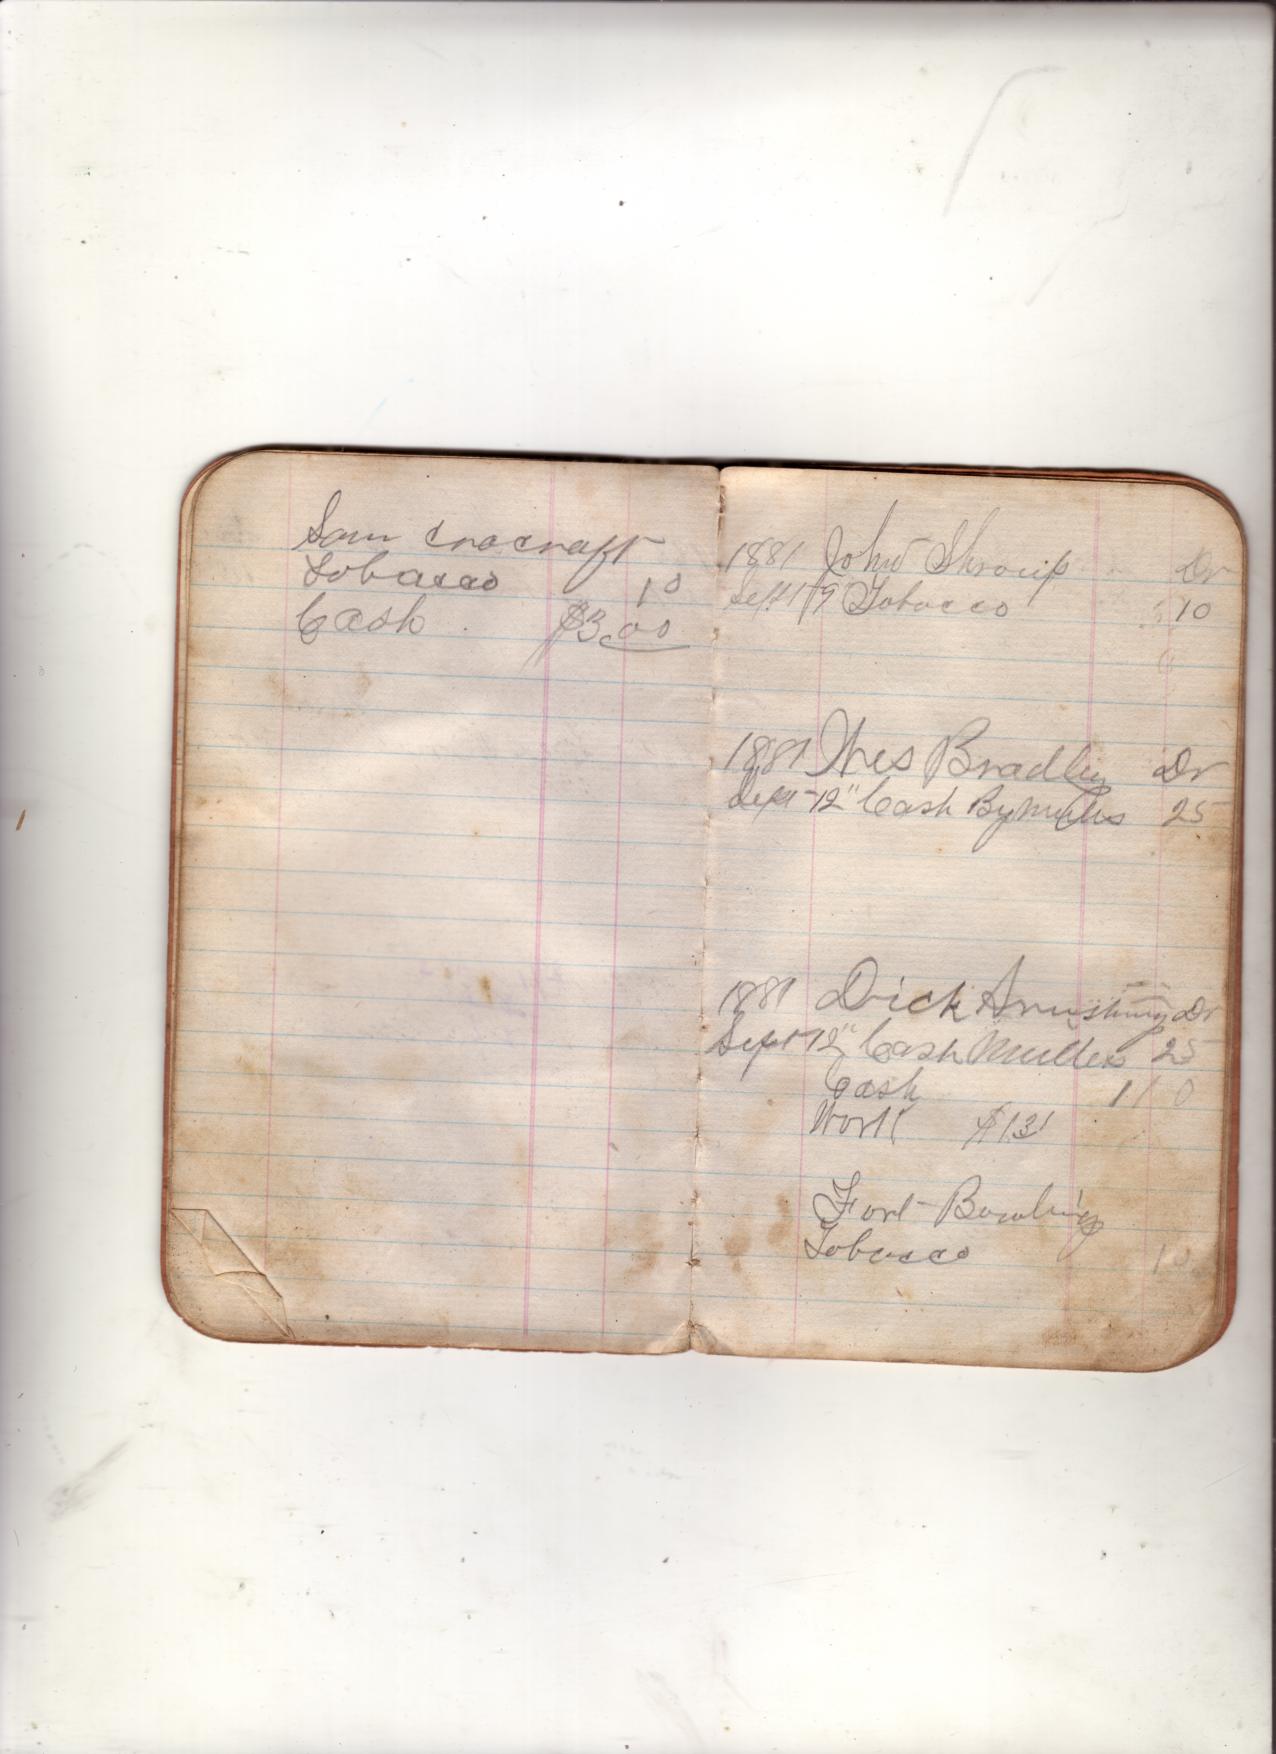 Sam Crocraft
Tobacco 10
Cash $3.00
1881 John Shroup Dr
Sept 19 Tobacco 10
1881 Wes Bradley Dr
Sept 12" Cash By 25
1881 Dick Armstrong Dr
Sept 12" Cash Mullens 25
Cash 110
Work $13
Fort Bowling
Tobacco 10